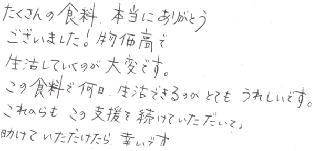 たくさんの食料、本当にありがとう
ございました！物価高で
生活していくのが大変です。
この食料で何日、生活できるのがとてもうれしいです。
これからもこの支援を続けていただいて、
助けていただけたら幸いです